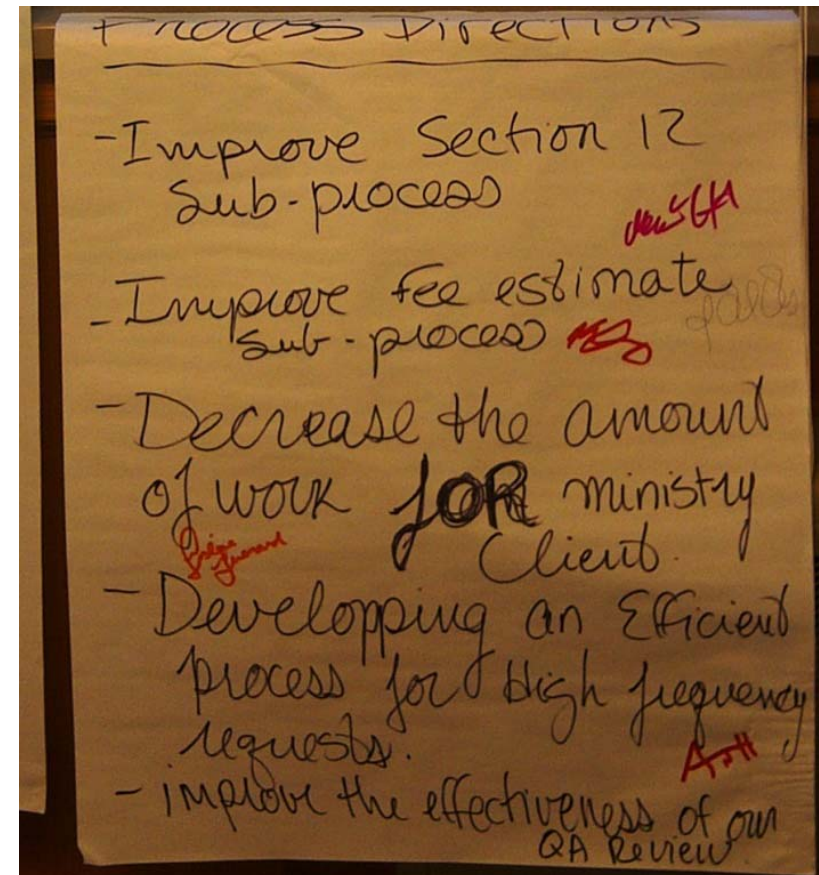 Process Directions
- Improve Section 12
Sub-process
- Improve fee estimate
Sub-process
- Decrease the amount
of work FOR ministry
Client.
- Developping an Efficient
process for High frequency
requests.
- improve the effectiveness of our
QA Review.